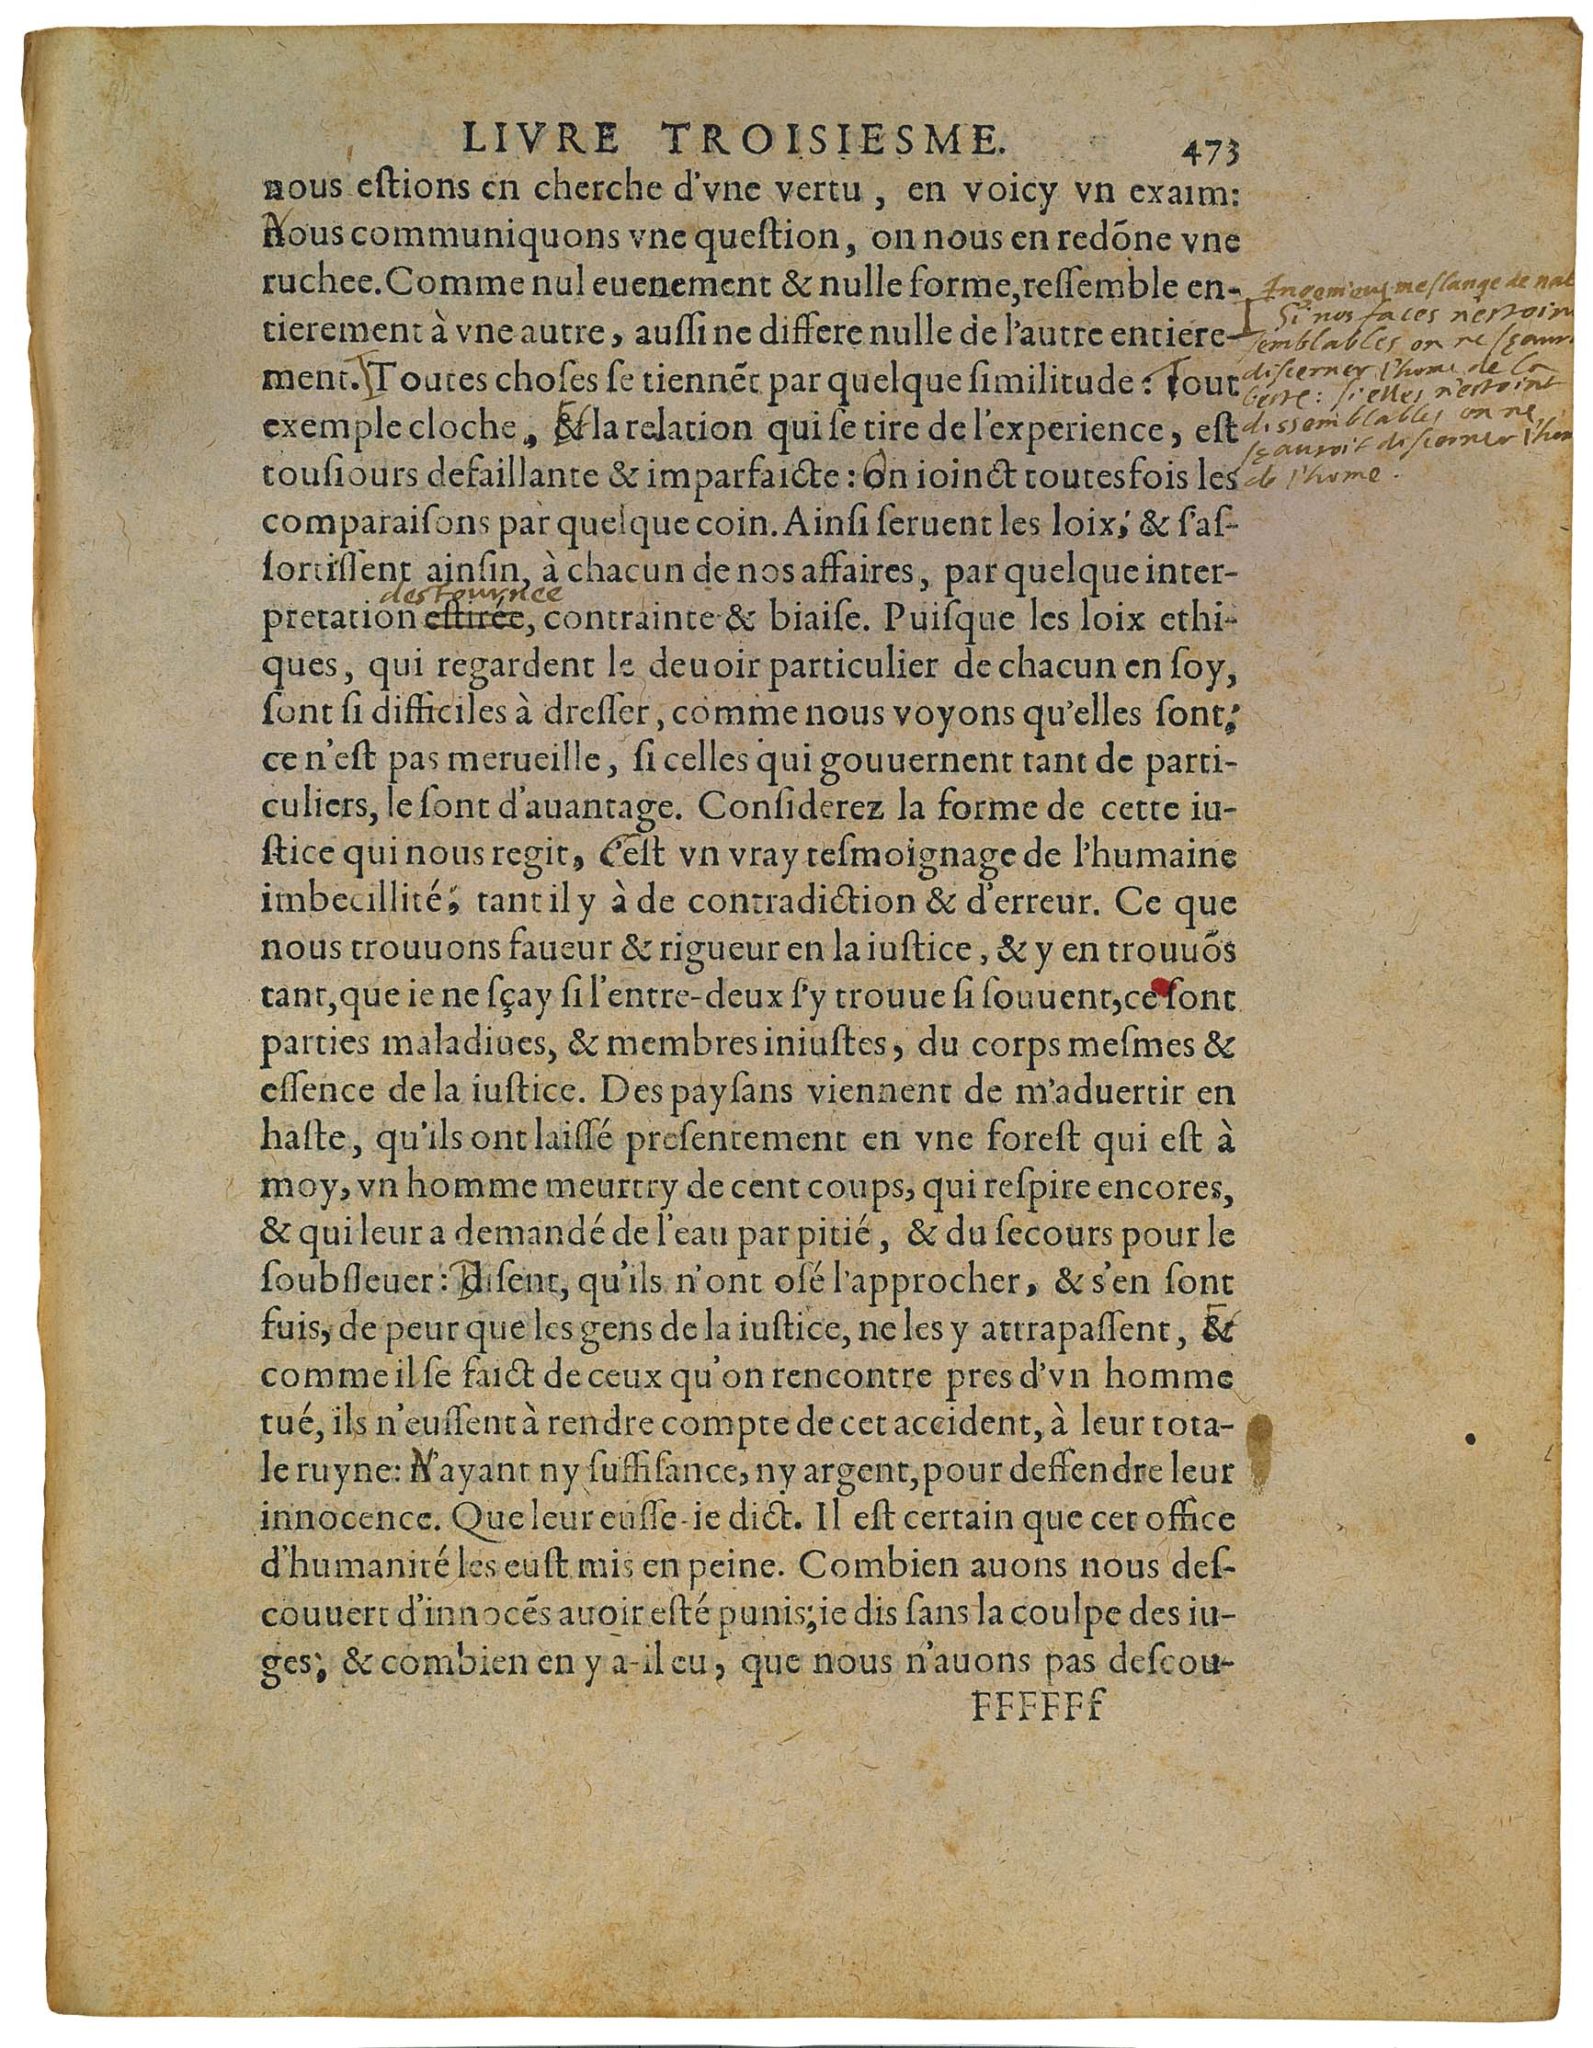 LIVRE TROISIESME. 473
nous eſtions en cherche d'vne vertu, en voicy vn exaim:
Nous communiquons vne queſtion, on nous en redōne vne
ruchee. Comme nul euenement & nulle forme, reſſemble en-
tierement à vne autre, auſſi ne differe nulle de l'autre entiere-
ment. Toutes choſes ſe tiennēt par quelque ſimilitude: Tout
exemple cloche, Et la relation qui ſe tire de l'experience, eſt
touſiours defaillante & imparfaicte: On ioinct toutesfois les
comparaiſons par quelque coin. Ainſi ſeruent les loix; & ſ'aſ-
ſortiſſent ainſin, à chacun de nos affaires, par quelque inter-
destournee
pretation eſtirée, contrainte & biaiſe. Puiſque les loix ethi-
ques, qui regardent le deuoir particulier de chacun en ſoy,
ſont ſi difficiles à dreſſer, comme nous voyons qu'elles ſont:
ce n'eſt pas merueille, ſi celles qui gouuernent tant de parti-
culiers, le ſont d'auantage. Conſiderez la forme de cette iu-
ſtice qui nous regit, C'eſt vn vray teſmoignage de l'humaine
imbecillité; tant il y à de contradiction & d'erreur. Ce que
nous trouuons faueur & rigueur en la iuſtice, & y en trouuōs
tant, que ie ne ſçay ſi l'entre-deux ſ'y trouue ſi ſouuent, ce ſont
parties maladiues, & membres iniuſtes, du corps meſmes &
eſſence de la iuſtice. Des payſans viennent de m'aduertir en
haſte, qu'ils ont laiſſé preſentement en vne foreſt qui eſt à
moy, vn homme meurtry de cent coups, qui reſpire encores,
& qui leur a demandé de l'eau par pitié, & du ſecours pour le
ſoubſleuer: Diſent, qu'ils n'ont oſé l'approcher, & s'en ſont
fuis, de peur que les gens de la iuſtice, ne les y attrapaſſent, Et
comme il ſe faict de ceux qu'on rencontre pres d'vn homme
tué, ils n'euſſent à rendre compte de cet accident, à leur tota-
le ruyne: N'ayant ny ſuffiſance, ny argent, pour deffendre leur
innocence. Que leur euſſe-ie dict. Il eſt certain que cet office
d'humanité les euſt mis en peine. Combien auons nous deſ-
couuert d'innocēs auoir eſté punis; ie dis ſans la coulpe des iu-
ges; & combien en y a-il eu, que nous n'auons pas deſcou-
FFFFFf
Ingenieux meslange de nat
Si nos faces n'estoin
semblables on ne sçaur
discerner l'home de la
beste: si elles n'estoint
dissemblables on ne
sçauroit discerner l'hom
de l'home.